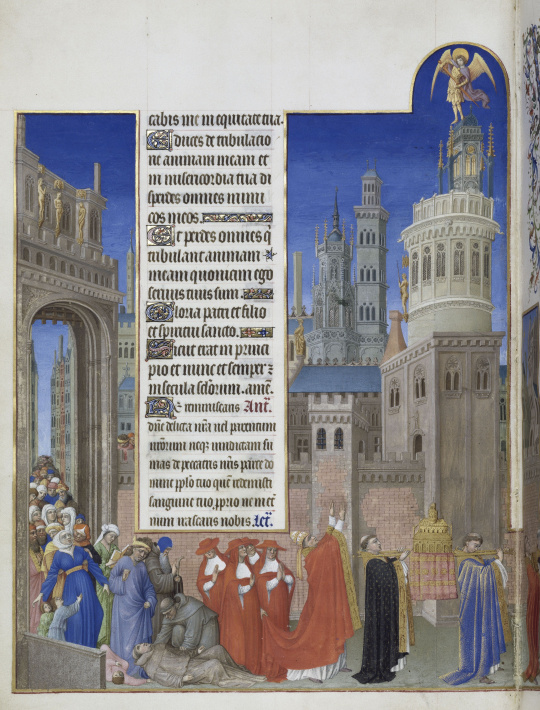 cabis me in equitate tua.
Educes de tribulatio
ne animam meam et
in misericordia tua di
sperdes omnes inimi
cos meos.
Et perdes omnes q̄
tribulant animam
meam quoniam ego
seruus tuus sum.
Gloria patri et filio
et spiritui sancto.
Sicut erat in princi
pio et nunc et semper ⁊
in secula sclorum. amē.
Ne reminiscaris Añ.
dñe delicta nr̄a uel parentum
nr̄orum neqꝫ uindictam su
mas de peccatis nr̄is parce do
mine pplo tuo quē redemisti
sanguine tuo, pprio ne in et
num irascaris nobis. Let.